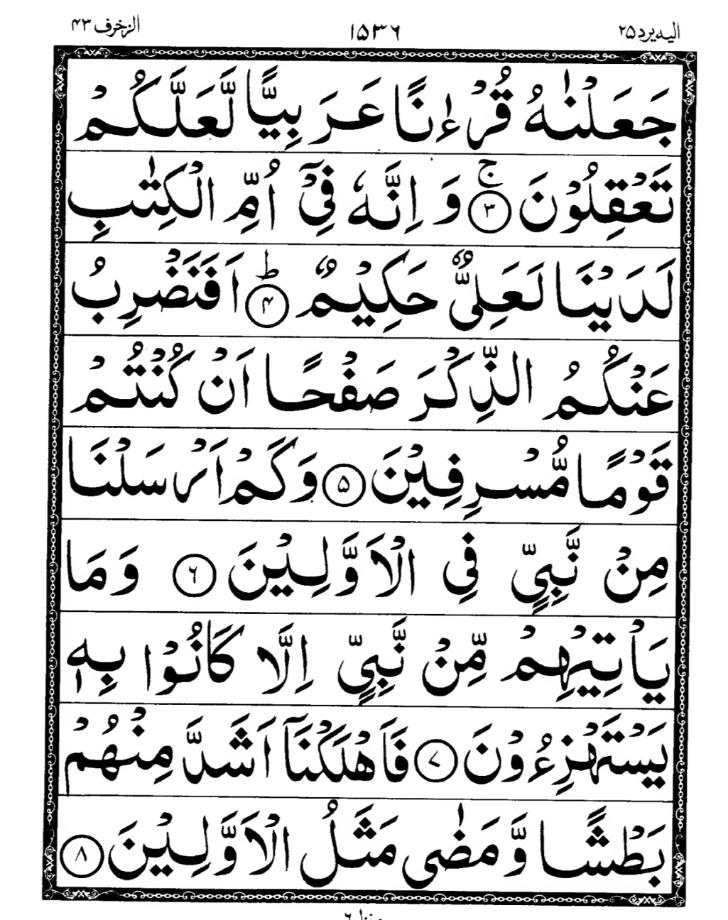 الیه یرد ۲۵ ۱۵۳۶ الزخرف ۴۳
جَعَلْنٰهُ قُرْءٰنًا عَرَبِيًّا لَّعَلَّكُمْ
تَعْقِلُوْنَ ۚ‏﴿۳﴾ وَ اِنَّهٗ فِيْٓ اُمِّ الْكِتٰبِ
لَدَيْنَا لَعَلِيٌّ حَكِيْمٌ ؕ‏﴿۴﴾ اَفَنَضْرِبُ
عَنْكُمُ الذِّكْرَ صَفْحًا اَنْ كُنْتُمْ
قَوْمًا مُّسْرِفِيْنَ ﴿۵﴾ وَكَمْ اَرْسَلْنَا
مِنْ نَّبِيٍّ فِي الْاَوَّلِيْنَ ﴿۶﴾ وَمَا
يَاْتِيْهِمْ مِّنْ نَّبِيٍّ اِلَّا كَانُوْا بِهٖ
يَسْتَهْزِءُوْنَ ﴿۷﴾ فَاَهْلَكْنَآ اَشَدَّ مِنْهُمْ
بَطْشًا وَّ مَضٰى مَثَلُ الْاَوَّلِيْنَ ﴿۸﴾